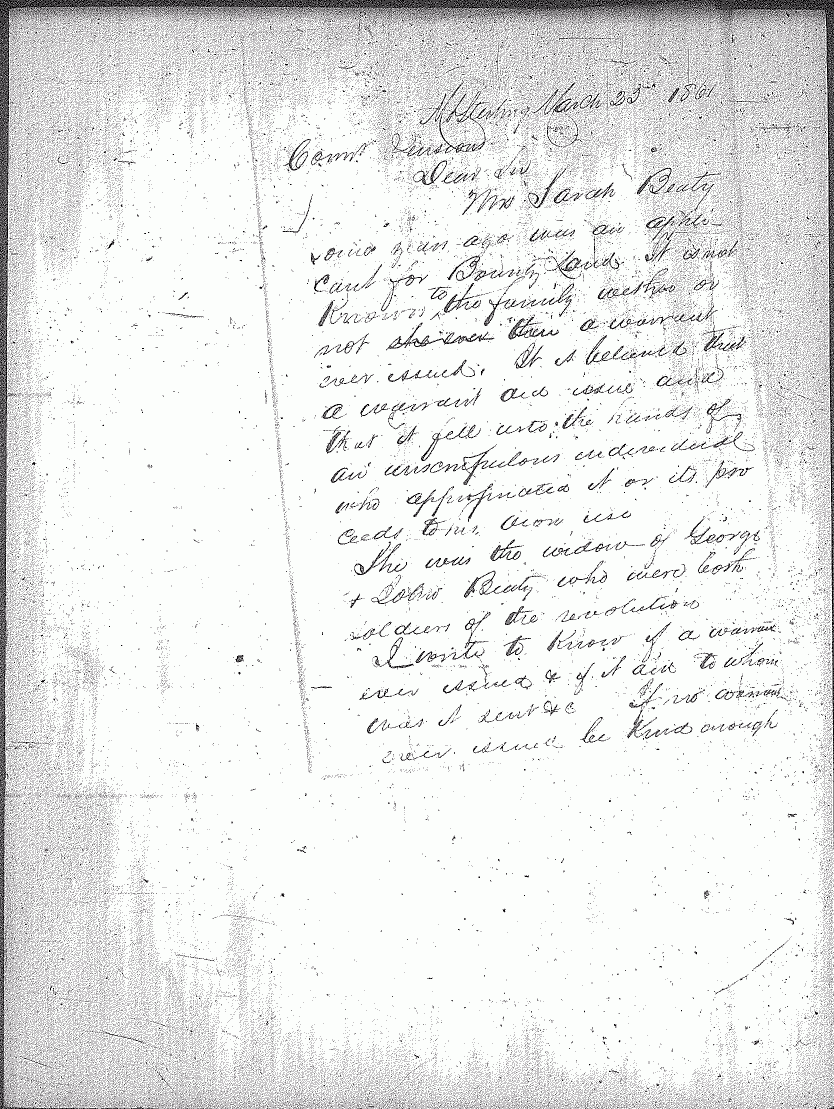 Mt Sterling March 23d 1861
Comr Pensions
Dear Sir
Mrs Sarah Beaty
some years ago was an appli-
cant for Bounty Land. It is not
Known to the family wether or
not she ever then a warrant
ever issued. It is believed that
a warrant did issue and
that it fell into the hands of
an unscrupulous individual
who appropriated it or its pro
ceeds to his own use
She was the widow of George
& John Beaty who were both
soldiers of the revolution
I write to Know if a warrant
ever issued & if it did to whom
was it sent &c If no warrant
ever issued be Kind enough